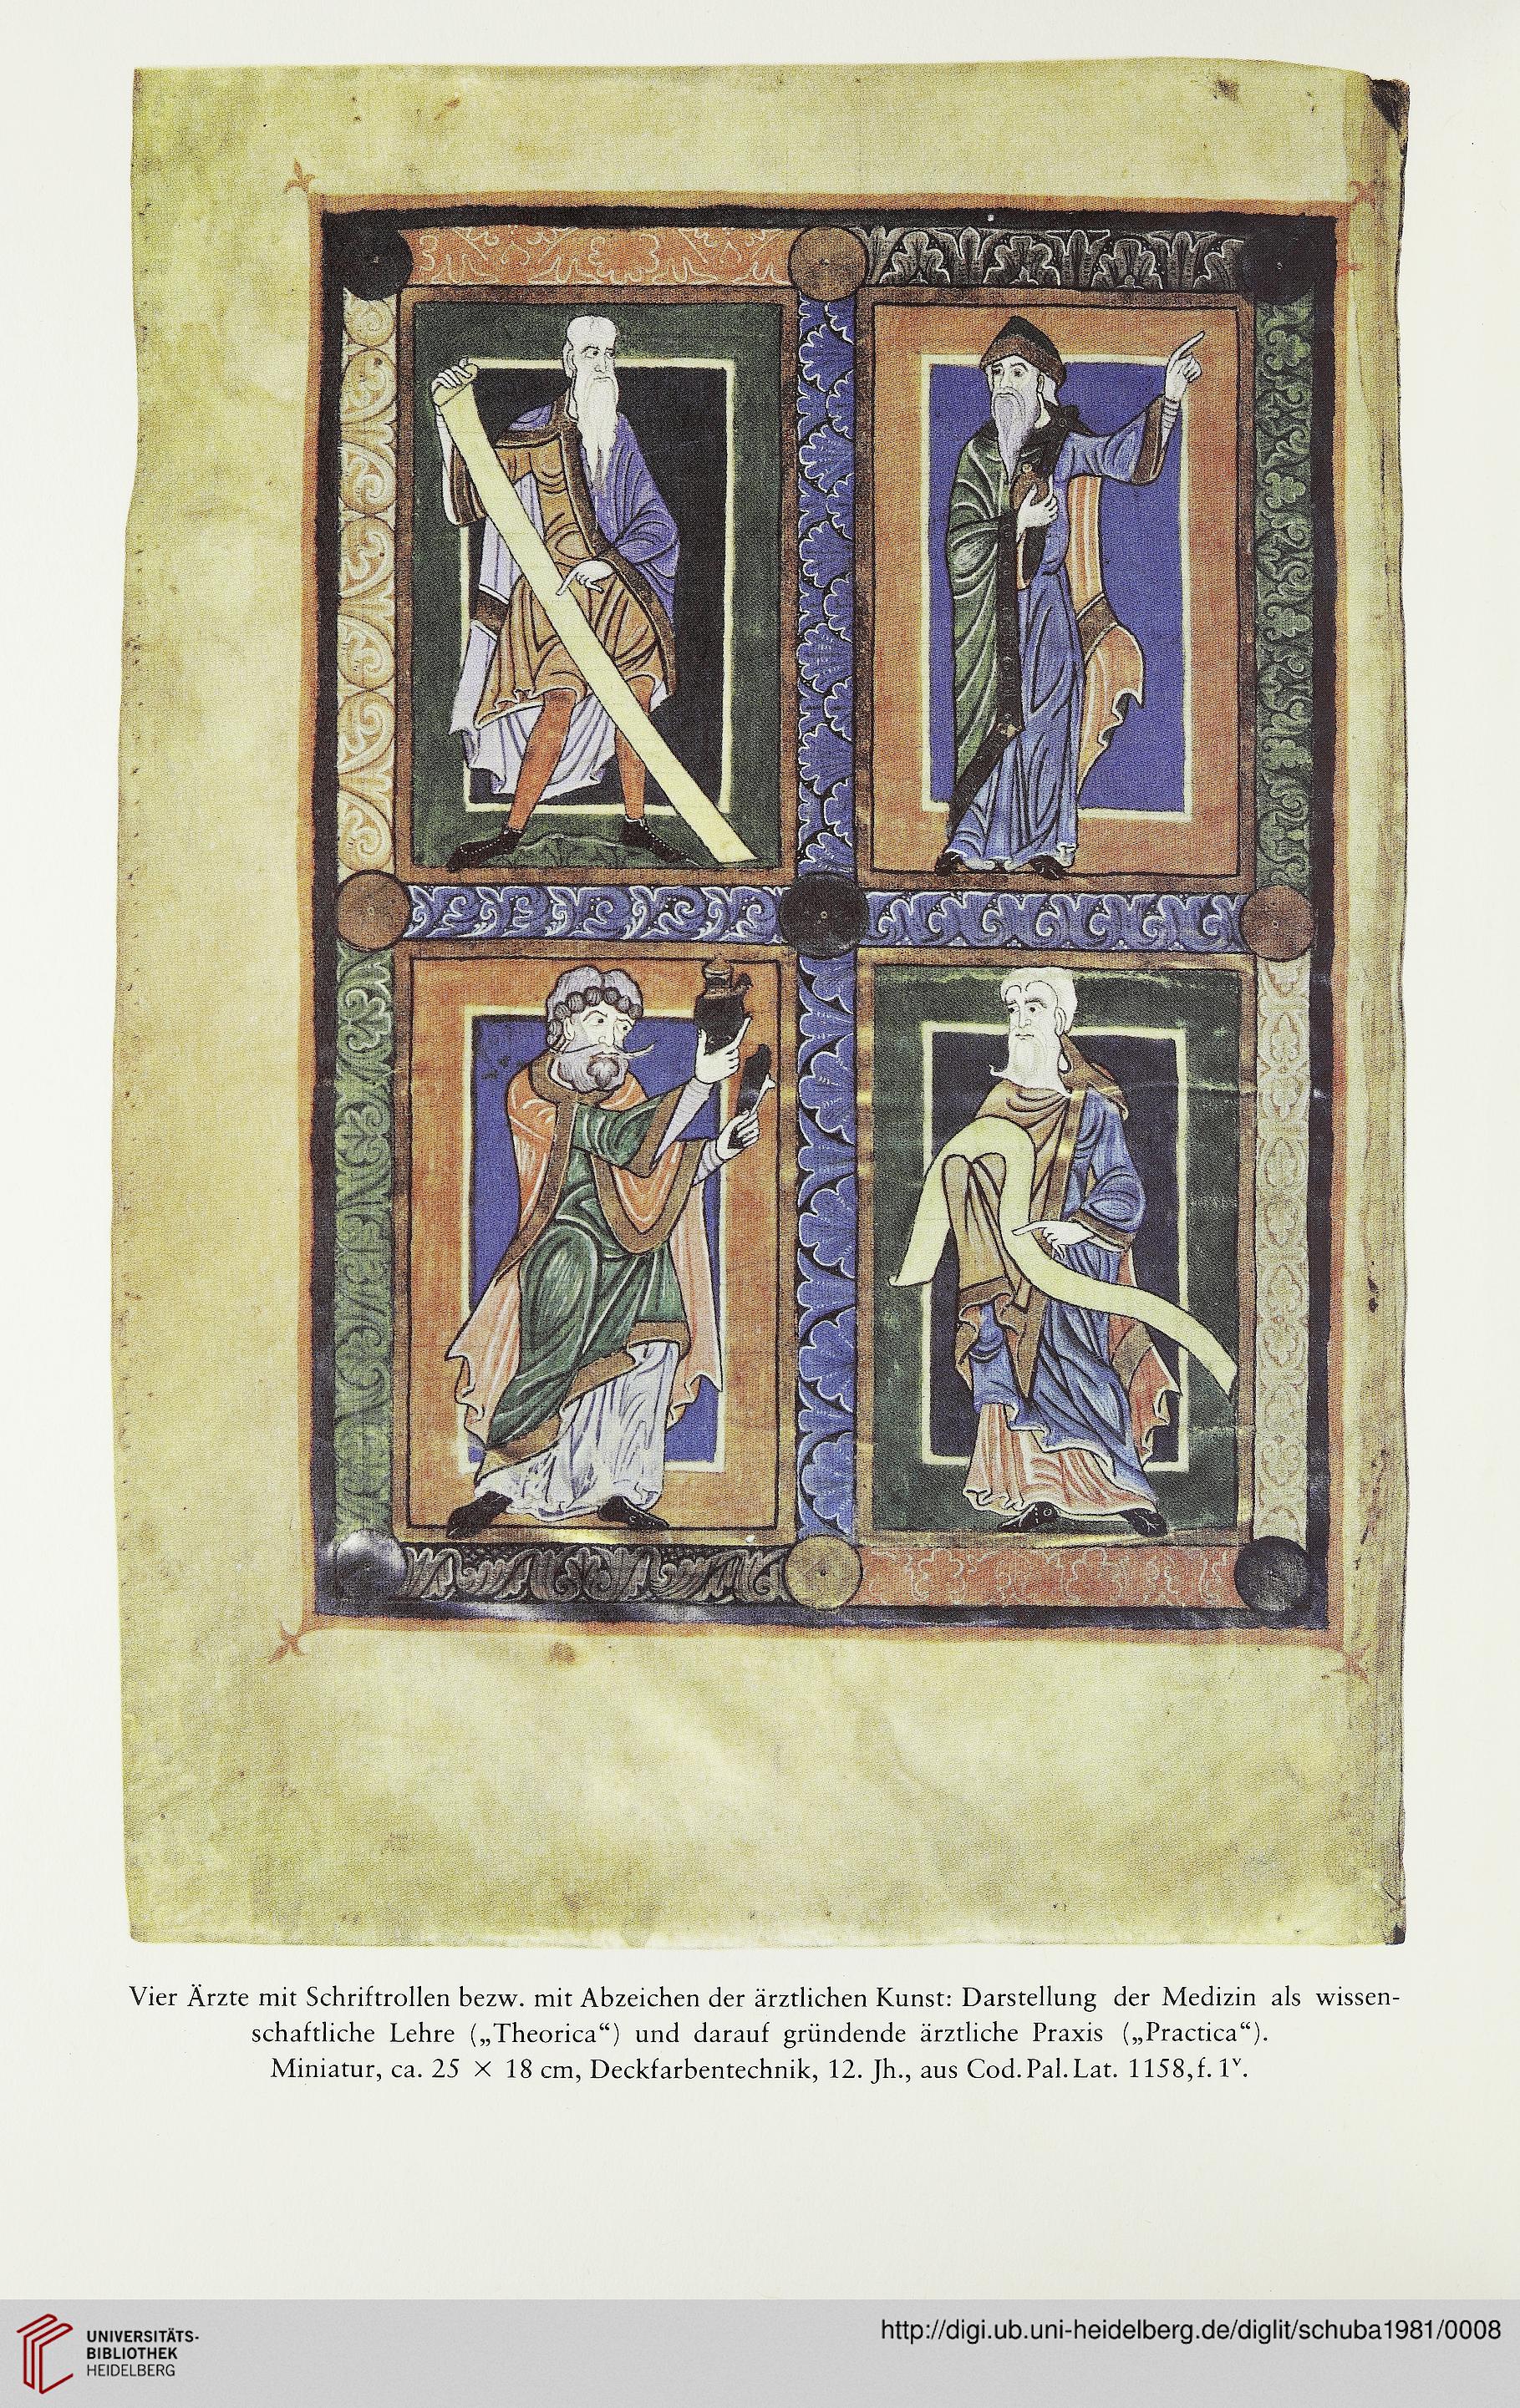 Vier Ärzte mit Schriftrollen bezw. mit Abzeichen der ärztlichen Kunst: Darstellung der Medizin als wissen-
schaftliche Lehre („Theorica“) und darauf gründende ärztliche Praxis („Practica“).
Miniatur, ca. 25 × 18 cm, Deckfarbentechnik, 12. Jh., aus Cod. Pal. Lat. 1158, f. 1ᵛ.
UNIVERSITÄTS-
BIBLIOTHEK
HEIDELBERG
http://digi.ub.uni-heidelberg.de/diglit/schuba1981/0008